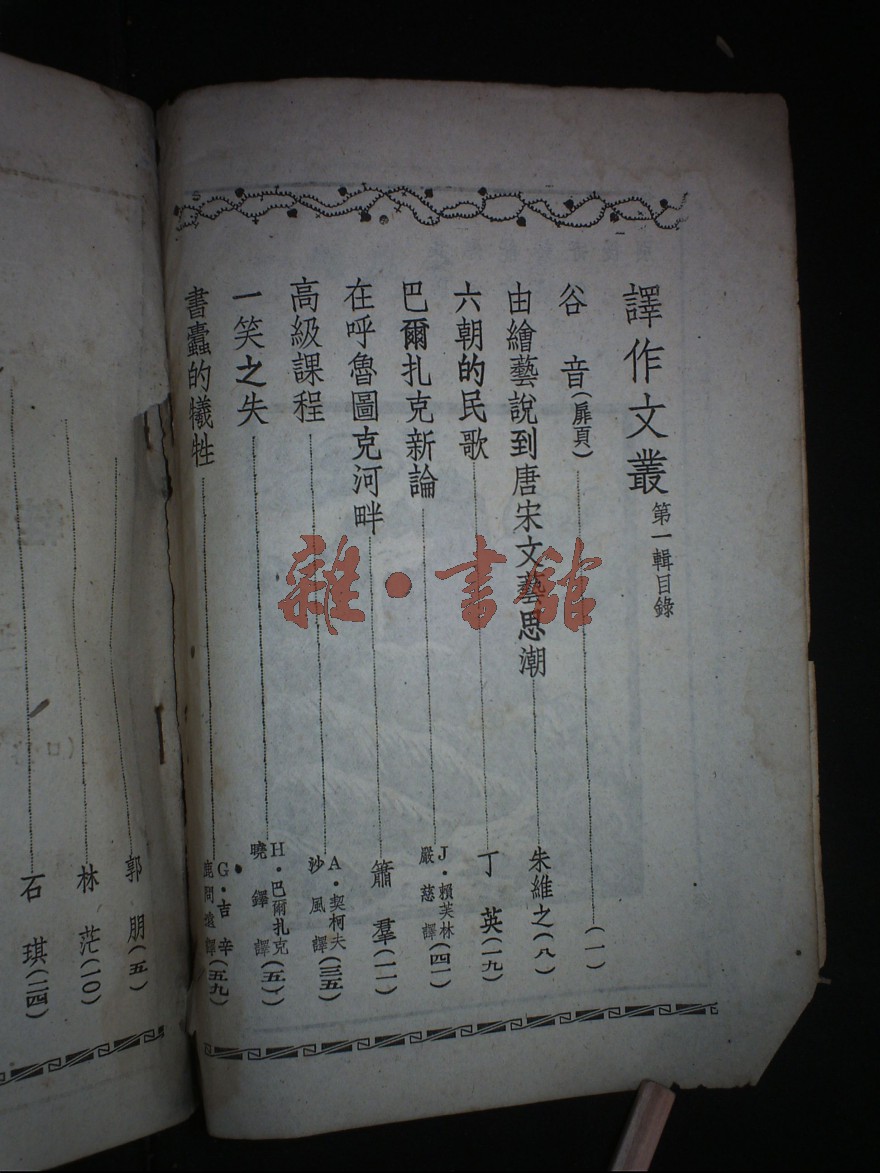 譯作文叢 第一輯目錄
谷音(扉頁)(一)
由繪藝說到唐宋文藝思潮 朱維之(八)
六朝的民歌 丁英(一九)
巴爾扎克新論 J·賴芙林 嚴慈譯(四一)
在呼魯圖克河畔 簫羣(二一)
高級課程 A·契柯夫 沙風譯(三五)
一笑之失 H·巴爾扎克 曉鐸譯(五七)
書蠹的犧牲 G·吉辛 鹿問 譯(五九)
郭朋(五)
林茫(一〇)
石琪(二四)
雜·書館